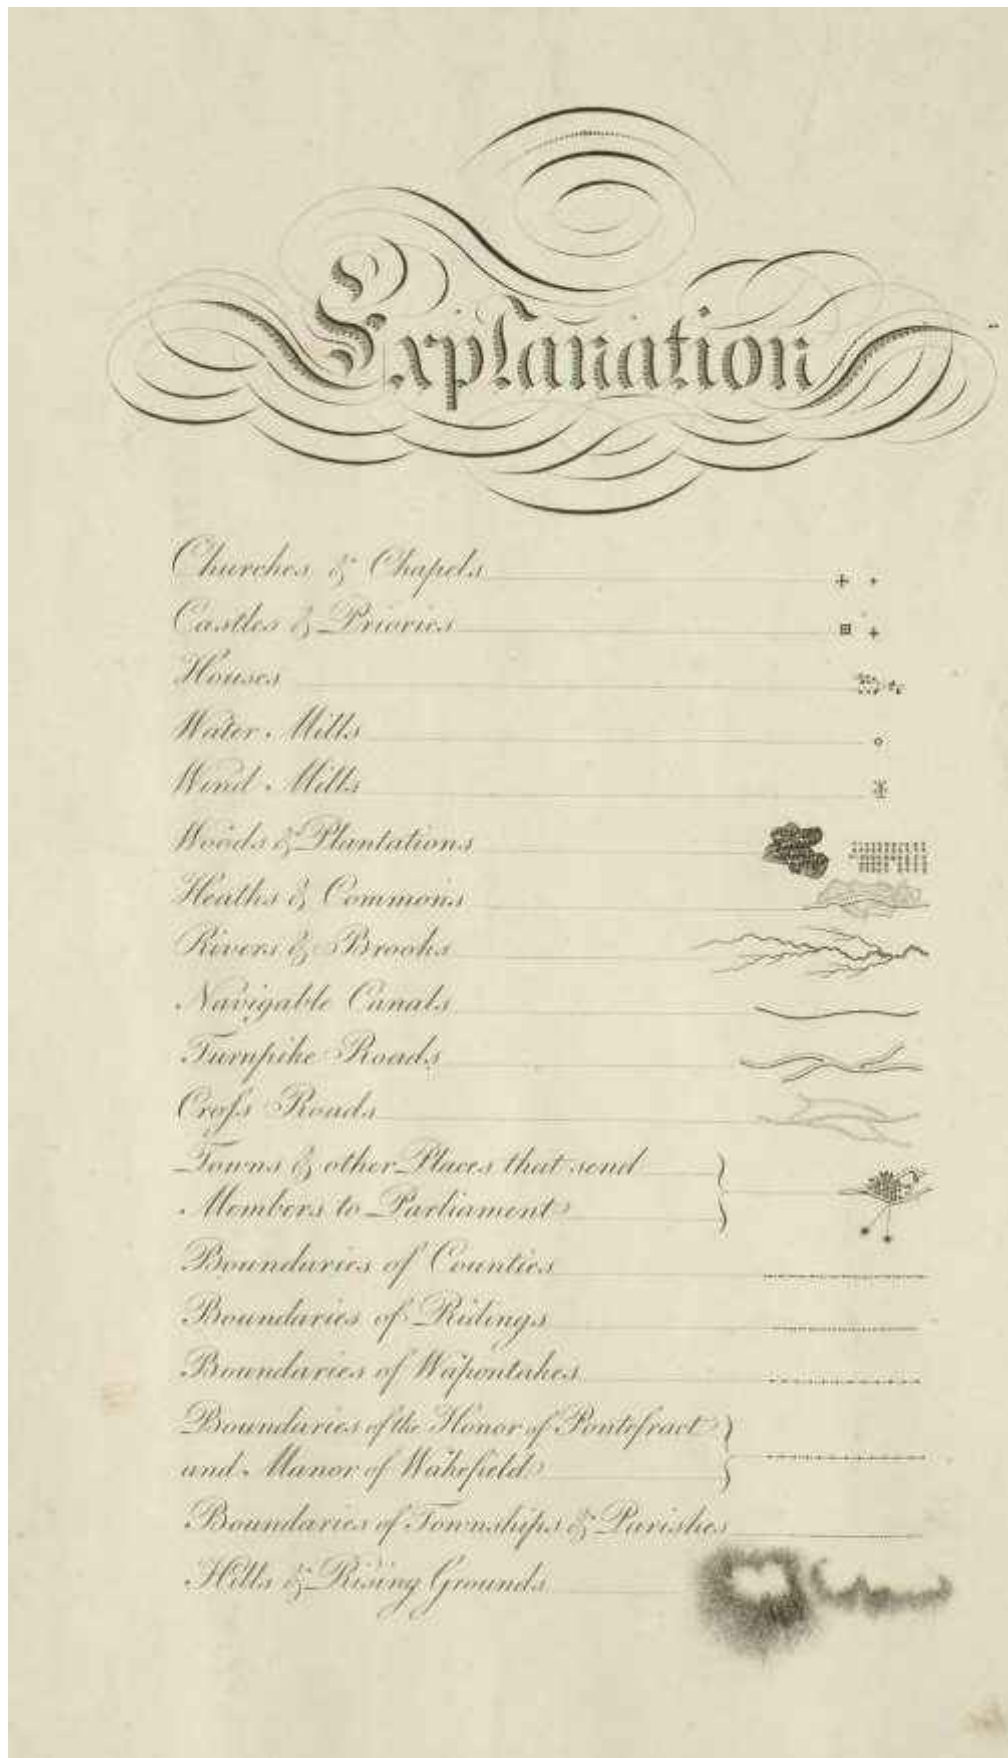 Explanation
Churches & Chapels
Castles & Priories
Houses
Water Mills
Wind Mills
Woods & Plantations
Heaths & Commons
Rivers & Brooks
Navigable Canals
Turnpike Roads
Croſs Roads
Towns & other Places that send
Members to Parliament
Boundaries of Counties
Boundaries of Ridings
Boundaries of Wapontakes
Boundaries of the Honor of Pontefract
and Manor of Wakefield
Boundaries of Townships & Parishes
Hills & Rising Grounds